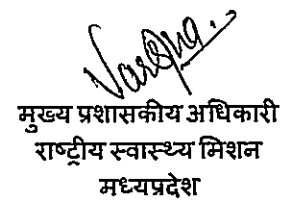 Varsha
मुख्य प्रशासकीय अधिकारी
राष्ट्रीय स्वास्थ्य मिशन
मध्यप्रदेश